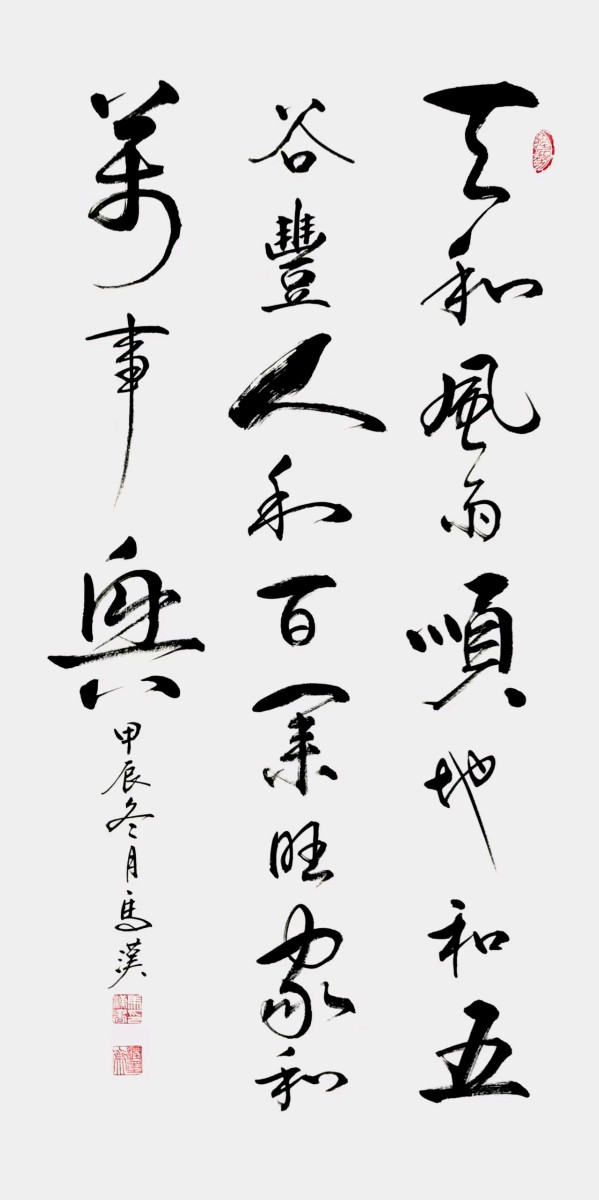 天和風雨順地和五
谷豐人和百業旺家和
萬事興
甲辰冬月馬漢